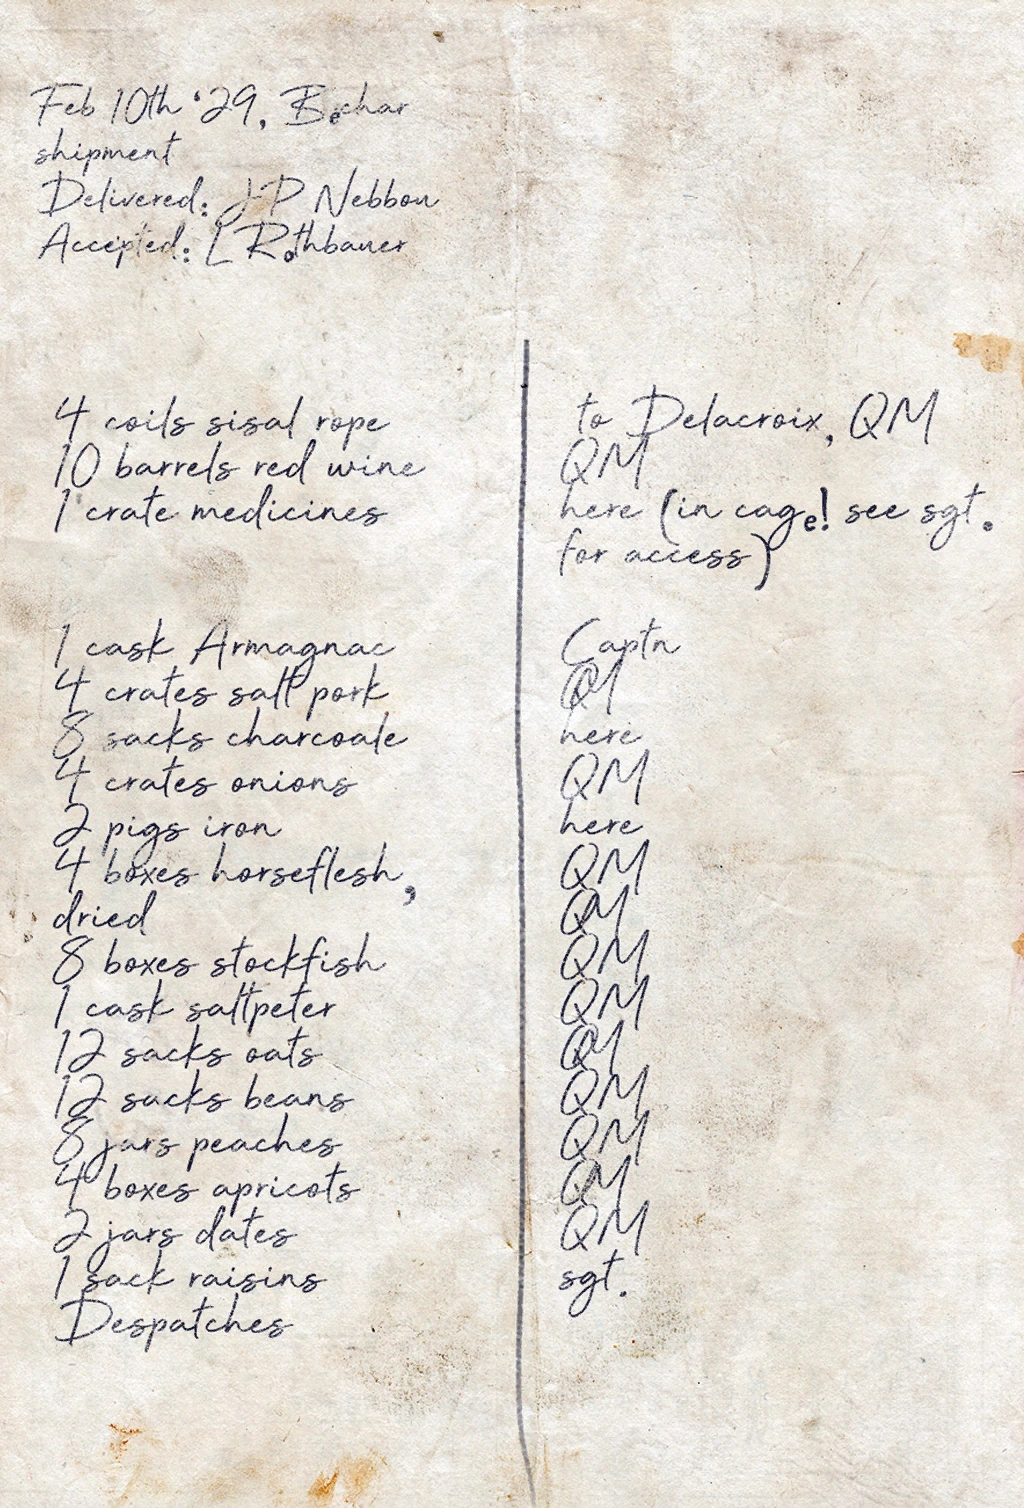 Feb 10th '29, Bochar
shipment
Delivered: J-P Nebbou
Accepted: L Rothbauer
4 coils sisal rope to Delacroix, QM
10 barrels red wine QM
1 crate medicines here (in cage! see sgt.
for access)
1 cask Armagnac Captn
4 crates salt pork QM
8 sacks charcoale here
4 crates onions QM
2 pigs iron here
4 boxes horseflesh, QM
dried QM
8 boxes stockfish QM
1 cask saltpeter QM
12 sacks oats QM
12 sacks beans QM
8 jars peaches QM
4 boxes apricots QM
2 jars dates QM
1 sack raisins sgt.
Despatches